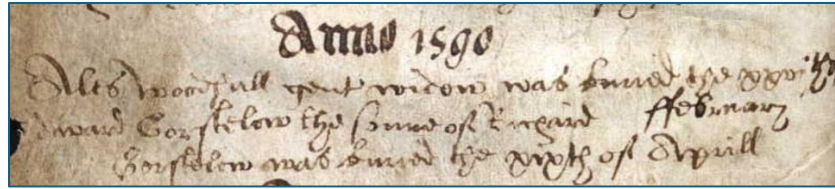 Anno 1590
Ales Woodfull gent widow was buried the xxvith
Edward Gorstelow the sonne of Richard ffebruary
Gorstelow was buried the xixth of Aprill